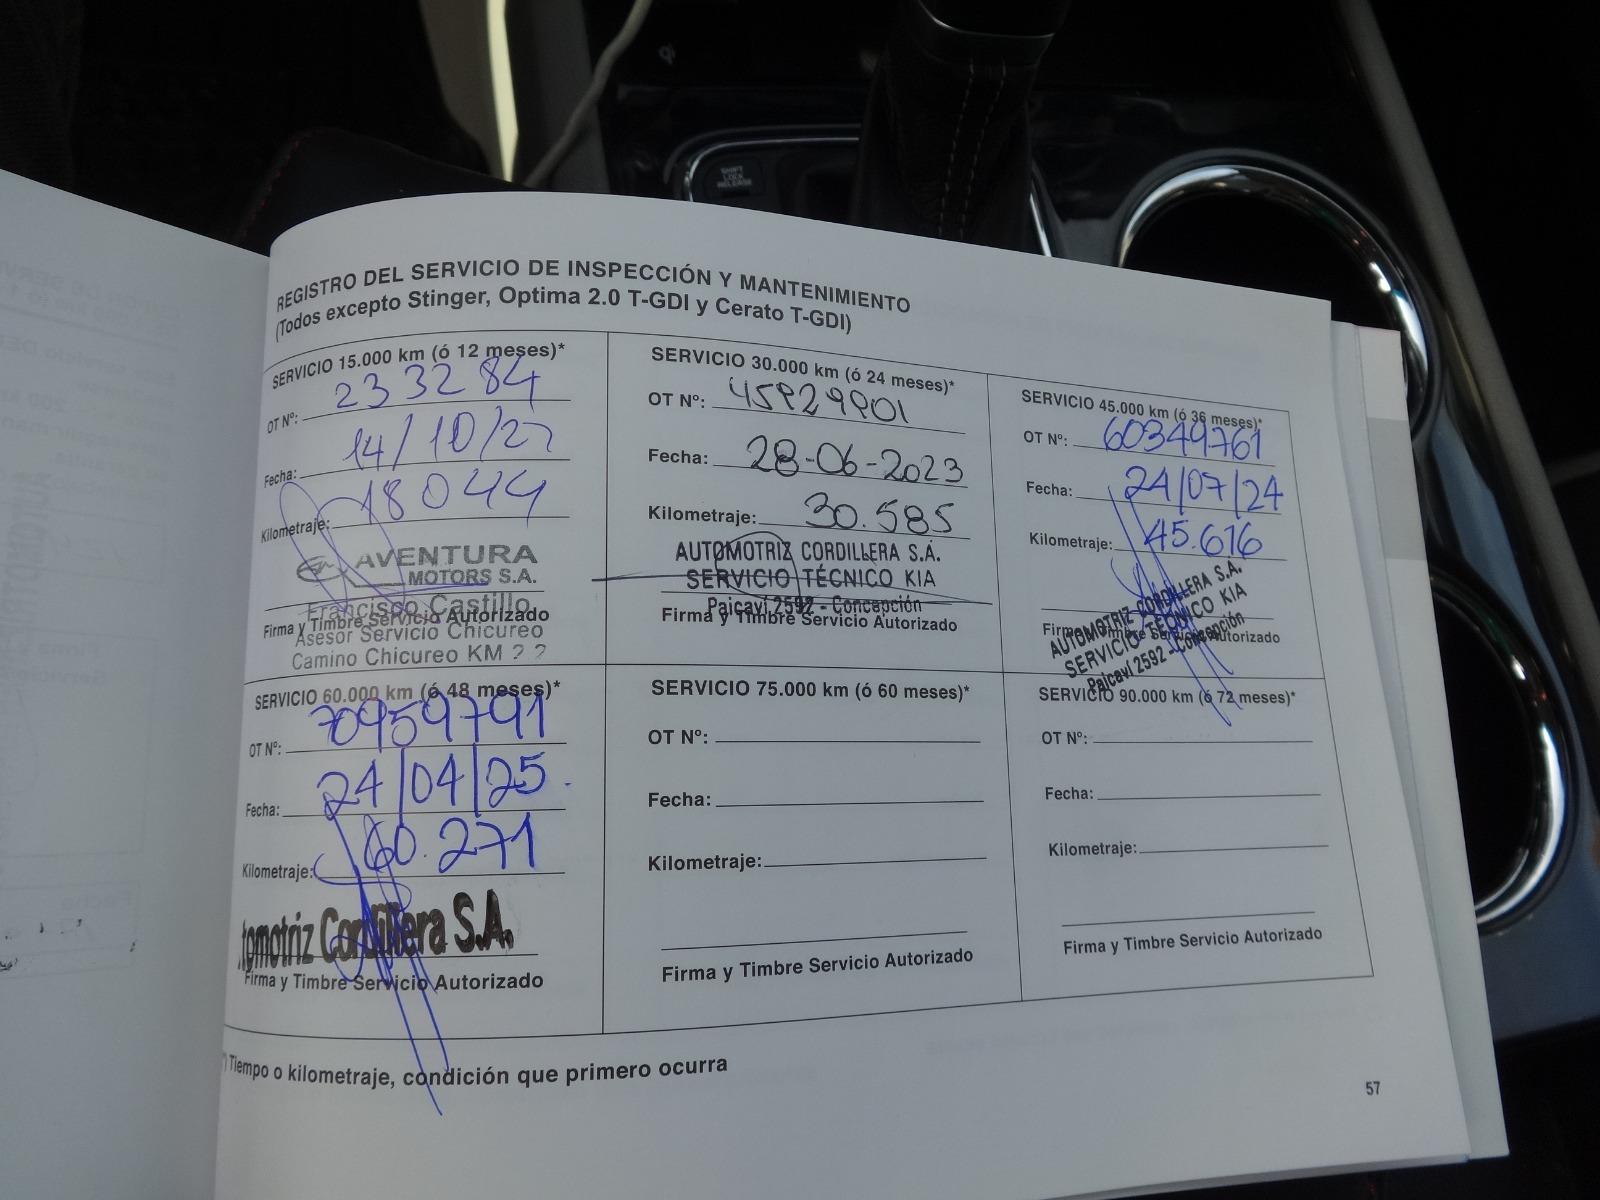 SHIFT
LOCK
RELEASE
REGISTRO DEL SERVICIO DE INSPECCIÓN Y MANTENIMIENTO
(Todos excepto Stinger, Optima 2.0 T-GDI y Cerato T-GDI)
SERVICIO 15.000 km (ó 12 meses)*
OT Nº: 233284
Fecha: 14/10/22
Kilometraje: 18044
AVENTURA
MOTORS S.A.
Francisco Castillo
Firma y Timbre Servicio Autorizado
Asesor Servicio Chicureo
Camino Chicureo KM 2 2
SERVICIO 30.000 km (ó 24 meses)*
OT Nº: 45929901
Fecha: 28-06-2023
Kilometraje: 30.585
AUTOMOTRIZ CORDILLERA S.A.
SERVICIO TÉCNICO KIA
Paicaví 2592 - Concepción
Firma y Timbre Servicio Autorizado
SERVICIO 45.000 km (ó 36 meses)*
OT Nº: 60349761
Fecha: 24/07/24
Kilometraje: 45.616
AUTOMOTRIZ CORDILLERA S.A.
SERVICIO TÉCNICO KIA
Paicaví 2592 - Concepción
Firma y Timbre Servicio Autorizado
SERVICIO 60.000 km (ó 48 meses)*
OT Nº: 70959791
Fecha: 24/04/25.
Kilometraje: 60.271
tomotriz Cordillera S.A.
Firma y Timbre Servicio Autorizado
SERVICIO 75.000 km (ó 60 meses)*
OT Nº:
Fecha:
Kilometraje:
Firma y Timbre Servicio Autorizado
SERVICIO 90.000 km (ó 72 meses)*
OT Nº:
Fecha:
Kilometraje:
Firma y Timbre Servicio Autorizado
*) Tiempo o kilometraje, condición que primero ocurra
57